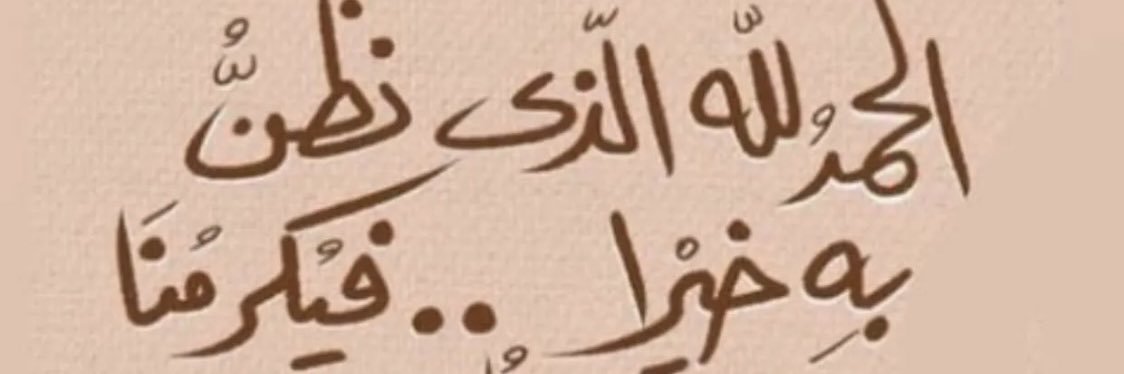 الحمدُ للّه الّذى نظنُّ
بهِ خيْرا .. فيُكرمُنَا